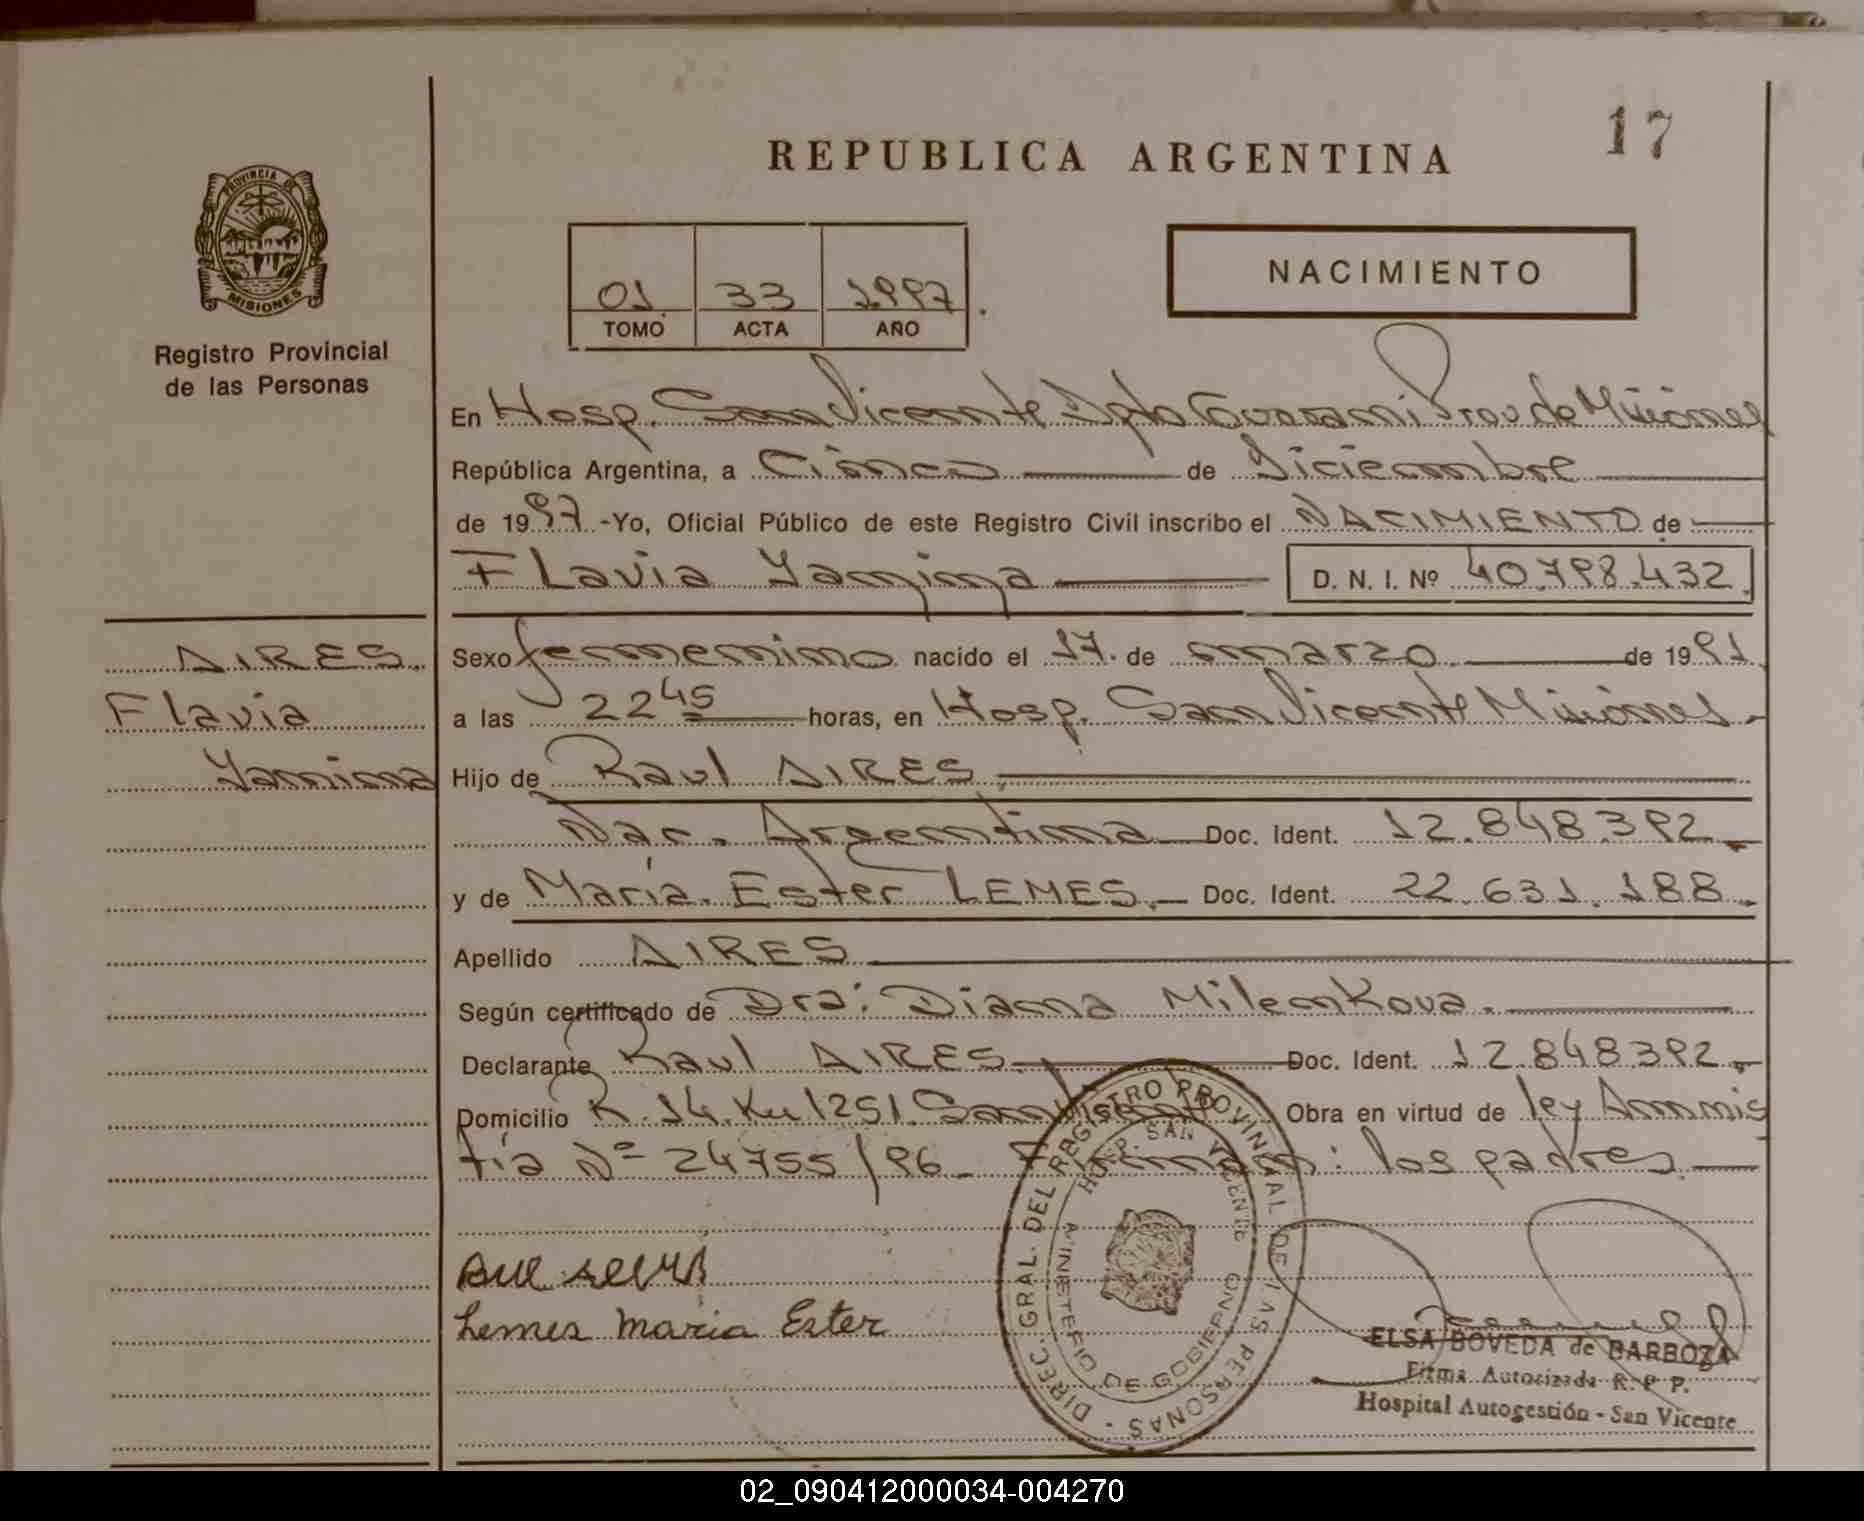 17
REPUBLICA ARGENTINA
PROVINCIA DE
MISIONES
Registro Provincial
de las Personas
01 33 1997
TOMO ACTA AÑO
NACIMIENTO
En Hosp. San Vicente Dpto Guarani Prov de Misiones
República Argentina, a Cinco de Diciembre
de 1997 -Yo, Oficial Público de este Registro Civil inscribo el NACIMIENTO de
FLavia Yamima D. N. I. Nº 40.798.432
AIRES
Flavia
Yamima
Sexo femenino nacido el 17. de marzo de 1991
a las 22 45 horas, en Hosp. San Vicente Misiones
Hijo de Raul AIRES
Nac. Argentina Doc. Ident. 12.848.392
y de María Ester LEMES. Doc. Ident. 22.631.188
Apellido AIRES
Según certificado de Dra: Diana Milenkova.
Declarante Raul AIRES Doc. Ident. 12.848.392.
Domicilio R. 14. Km 1251. San Vicente Obra en virtud de ley Amnis
tía Nº 24755/96_ Firman: los padres.
Lemes Maria Ester
DIREC. GRAL. DEL REGISTRO PROVINCIAL DE LAS PERSONAS -
HOSP. SAN VICENTE
MINISTERIO DE GOBIERNO
ELSA BOVEDA de BARBOZA
Firma Autorizada R. P P.
Hospital Autogestión - San Vicente
02_090412000034-004270